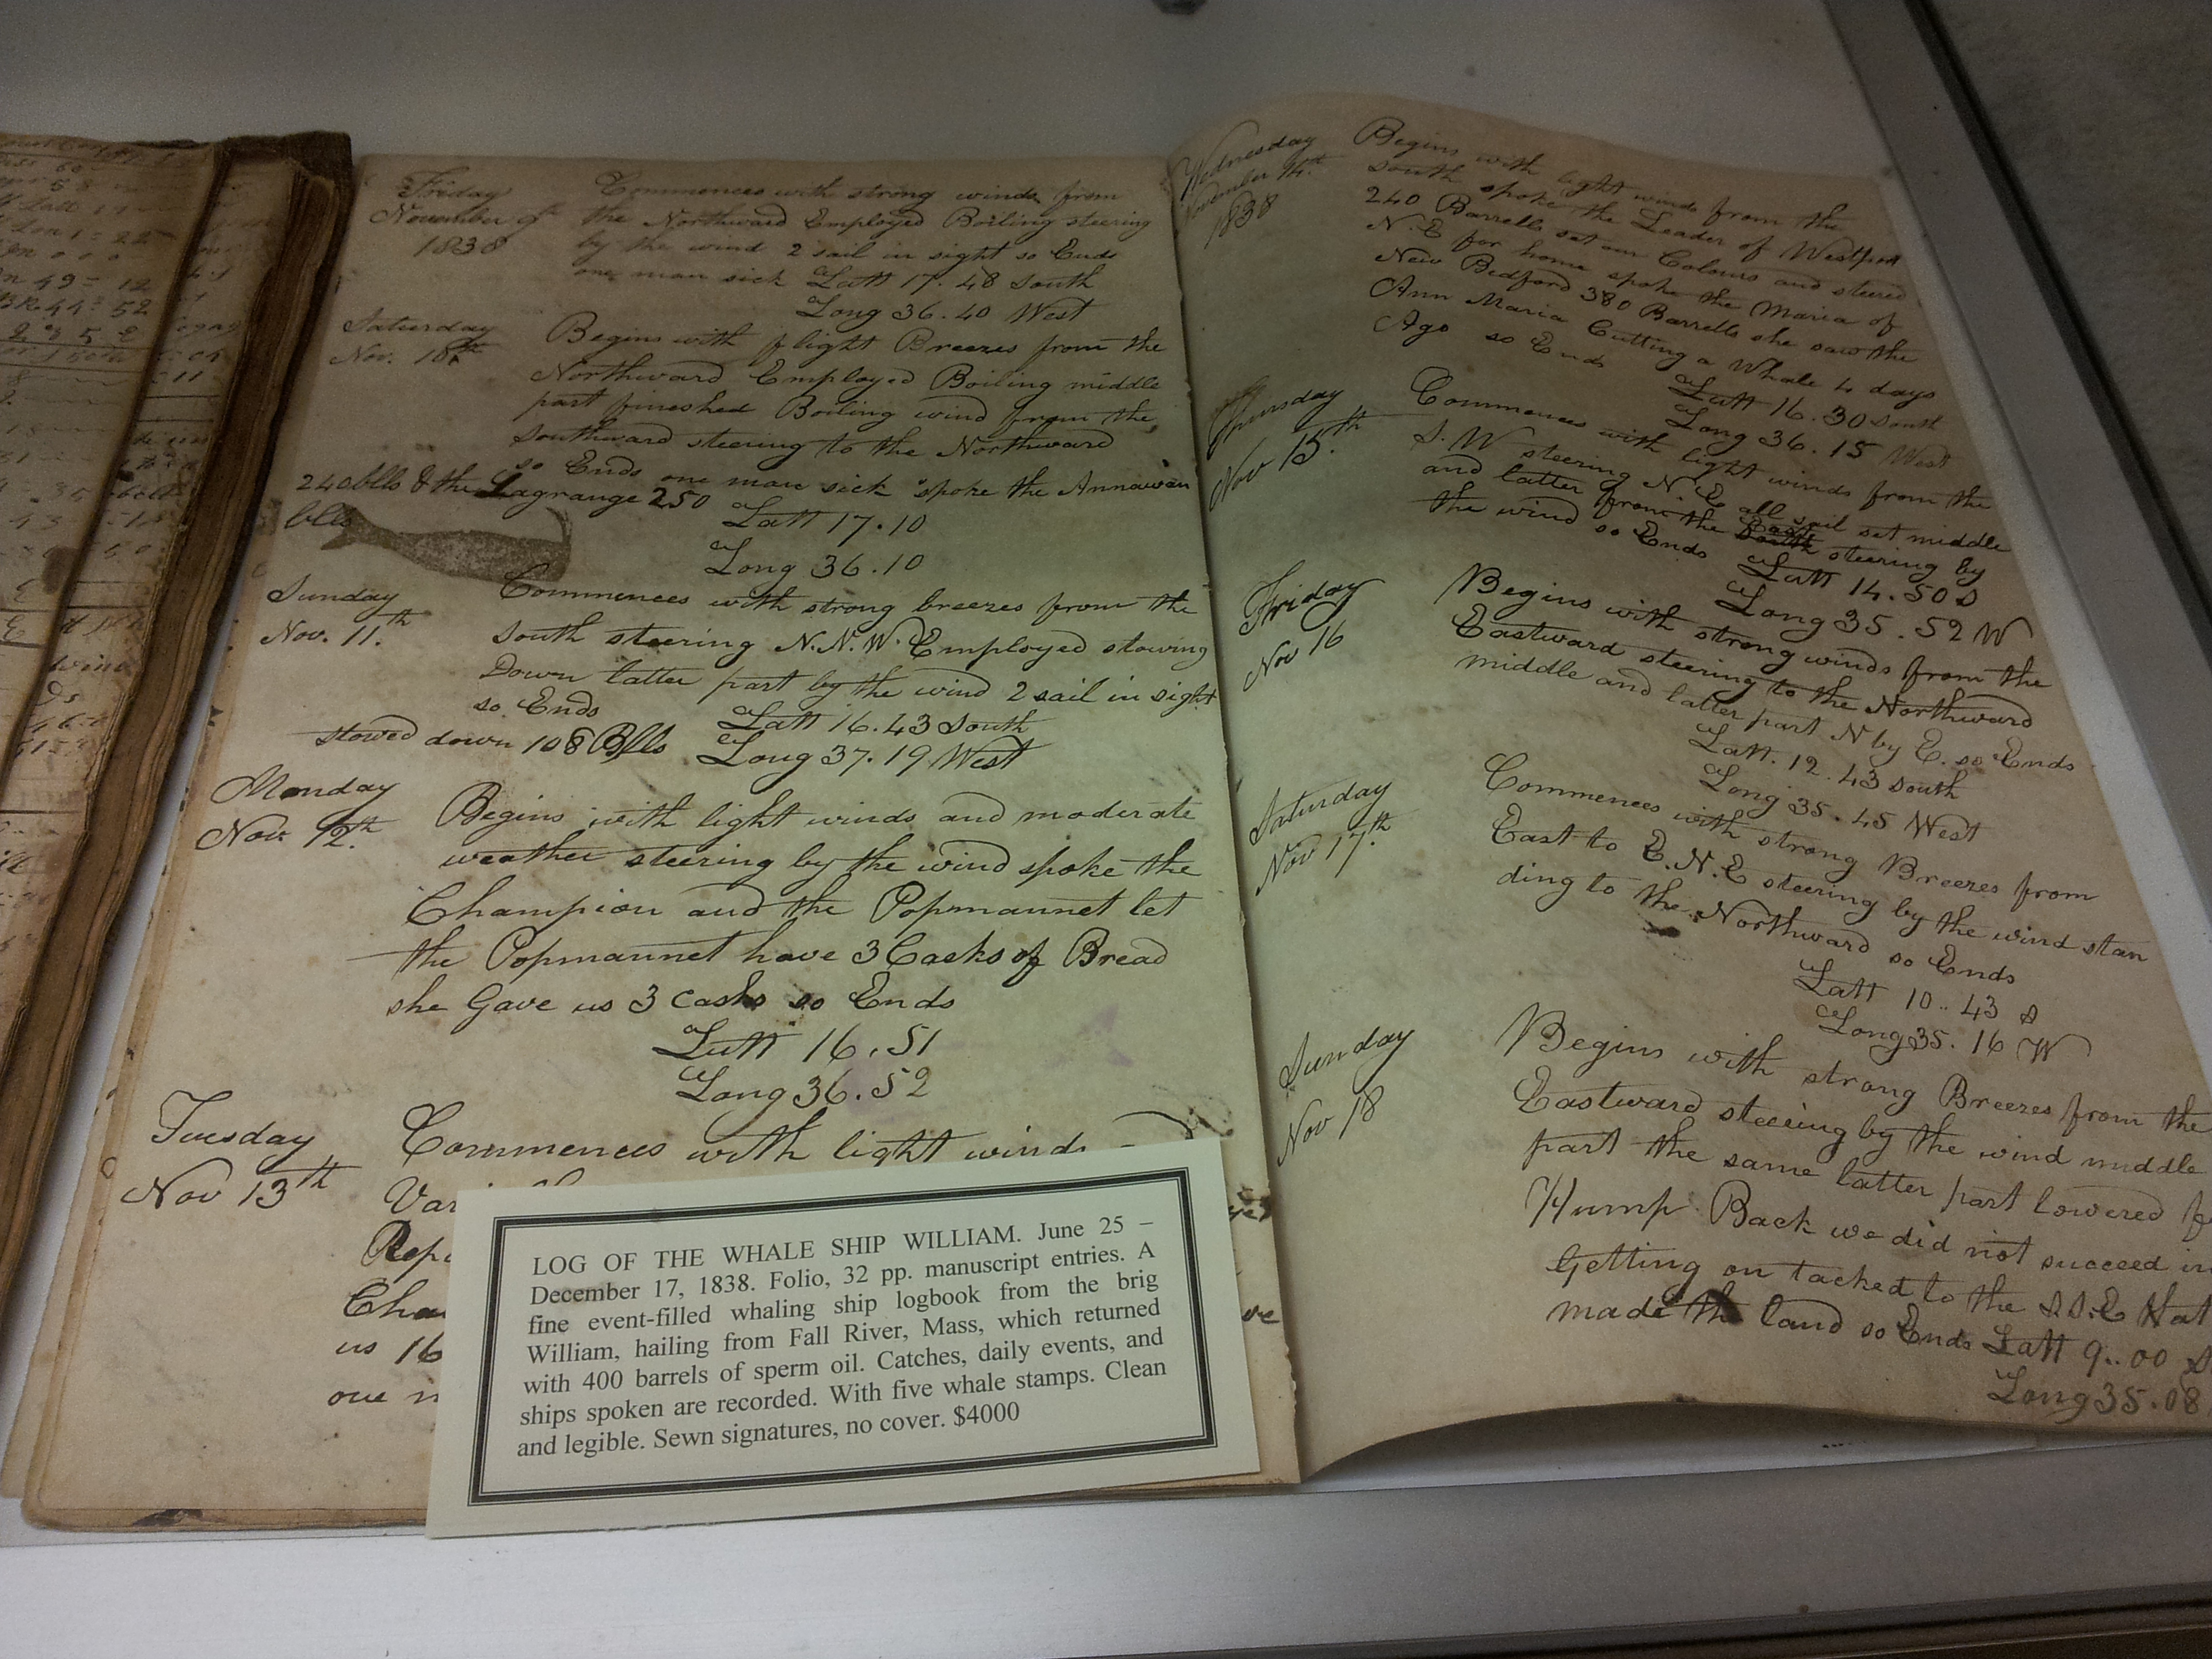 Friday
November 9th
1838
Commences with strong winds from
the Northward Employed Boiling steering
by the wind 2 sail in sight so Ends
one man sick Latt 17.48 South
Long 36.40 West
Saturday
Nov. 10th
Begins with light Breezes from the
Northward Employed Boiling middle
part fineshed Boiling wind from the
Southward steering to the Northward
so Ends one man sick spoke the Annawan
240 blls & the Lagrange 250
blls
Latt 17.10
Long 36.10
Sunday
Nov. 11.th
Commences with strong breezes from the
South steering N.N.W. Employed stowing
Down latter part by the wind 2 sail in sight
so Ends
Latt 16.43 South
stowed down 108 Blls
Long 37.19 West
Monday
Nov. 12th.
Begins with light winds and moderate
weather steering by the wind spoke the
Champion and the Popmannet let
the Popmannet have 3 Casks of Bread
she Gave us 3 casks so Ends
Latt 16.51
Long 36.52
Tuesday
Nov 13th
Commences with light winds
Var
Repa
Cha
us 16
one
LOG OF THE WHALE SHIP WILLIAM. June 25 –
December 17, 1838. Folio, 32 pp. manuscript entries. A
fine event-filled whaling ship logbook from the brig
William, hailing from Fall River, Mass, which returned
with 400 barrels of sperm oil. Catches, daily events, and
ships spoken are recorded. With five whale stamps. Clean
and legible. Sewn signatures, no cover. $4000
Wednesday
November 14th.
1838
Begins with light winds from the
South spoke the Leader of Westport
240 Barrells set our Colours and steered
N.E for home spoke the Maria of
New Bedford 380 Barrells she saw the
Ann Maria Cutting a Whale 4 days
Ago so Ends
Latt 16.30 South
Long 36.15 West
Thursday
Nov 15.th
Commences with light winds from the
S.W steering N.E all sail set middle
and latter from the East South steering by
the wind so Ends
Latt 14.50 S
Long 35.52 W
Friday
Nov 16
Begins with strong winds from the
Eastward steering to the Northward
middle and latter part N by E. so Ends
Latt. 12.43 South
Long 35.45 West
Saturday
Nov 17.th
Commences with strong Breezes from
East to E.N.E steering by the wind stan
ding to the Northward so Ends
Latt 10..43 S
Long 35.16 W
Sunday
Nov 18
Begins with strong Breezes from the
Eastward steering by the wind middle
part the same latter part lowered
Hump Back we did not succeed in
Getting on tacked to the S.S.E
made the land so Ends Latt 9..00 S
Long 35.08